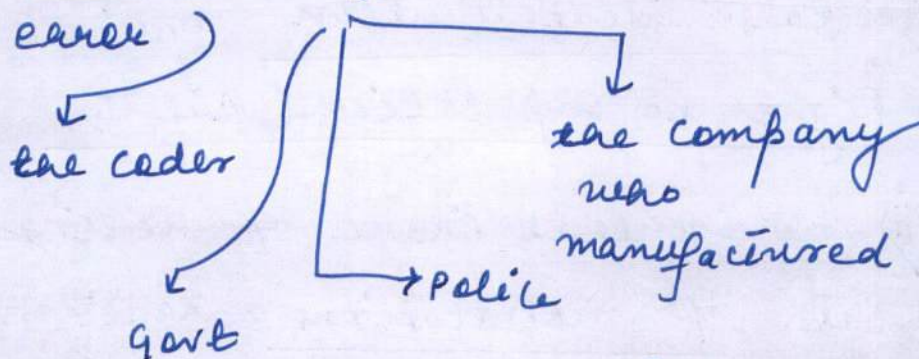 earer
the coder
the company
who
manufactured
Police
govt